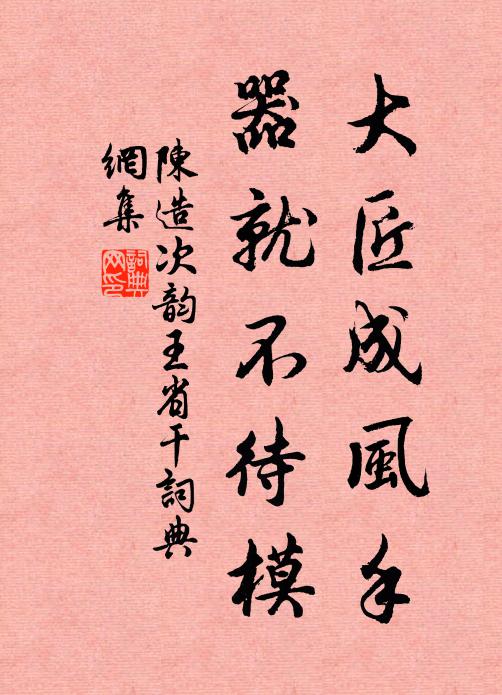 大匠成風手
器就不待模
陳造次韵王省干詞典
網集
詞典网印